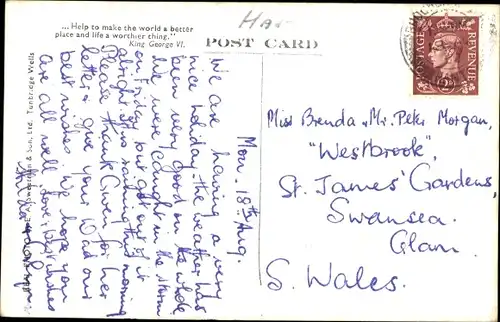 "...Help to make the world a better
place and life a worthier thing."
King George VI.
Ha
POST CARD
POSTAGE REVENUE
Mon. 18th Aug.
We are having a very
nice holiday - the weather has
been very good on the whole
We were caught in the storm
on Friday but got out of it
alright. It is raining this morning
Please thank Gwen for her
letter & give your Dad our
best wishes. We hope you
are all well Love & best wishes
Miss Brenda, Mr. Peter Morgan,
"Westbrook",
St. James' Gardens,
Swansea.
Glam.
S. Wales.
& Son, Ltd. Tunbridge Wells